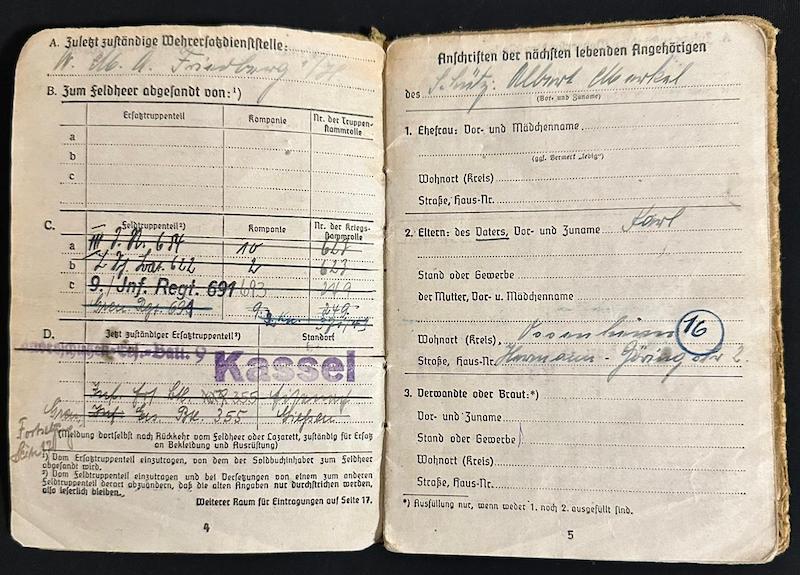 A. Zuletzt zuständige Wehrersatzdienststelle:
W. M. A. Friedberg
B. Zum Feldheer abgesandt von:¹)
Ersatztruppenteil Kompanie Nr. der Truppen-
stammrolle
a
b
c
C. Feldtruppenteil²) Kompanie Nr. der Kriegs-
stammrolle
a 10
b 2
c 9./Inf. Regt. 691
D. Jetzt zuständiger Ersatztruppenteil³) Standort
Kassel
355
355 Gießen
(Meldung dortselbst nach Rückkehr vom Feldheer oder Lazarett, zuständig für Ersatz
an Bekleidung und Ausrüstung)
¹) Vom Ersatztruppenteil einzutragen, von dem der Soldbuchinhaber zum Feldheer
abgesandt wird.
²) Vom Feldtruppenteil einzutragen und bei Versetzungen von einem zum anderen
Feldtruppenteil derart abzuändern, daß die alten Angaben nur durchstrichen werden,
also leserlich bleiben.
Weiterer Raum für Eintragungen auf Seite 17.
4
Anschriften der nächsten lebenden Angehörigen
des Albert Merkel
(Vor- und Zuname)
1. Ehefrau: Vor- und Mädchenname
(ggf. Vermerk „ledig")
Wohnort (Kreis)
Straße, Haus-Nr.
2. Eltern: des Vaters, Vor- und Zuname Karl
Stand oder Gewerbe
der Mutter, Vor- u. Mädchenname
Wohnort (Kreis) Ossenheim 16
Straße, Haus-Nr. Hermann-Göring
3. Verwandte oder Braut:*)
Vor- und Zuname
Stand oder Gewerbe
Wohnort (Kreis)
Straße, Haus-Nr.
*) Ausfüllung nur, wenn weder 1. noch 2. ausgefüllt sind.
5